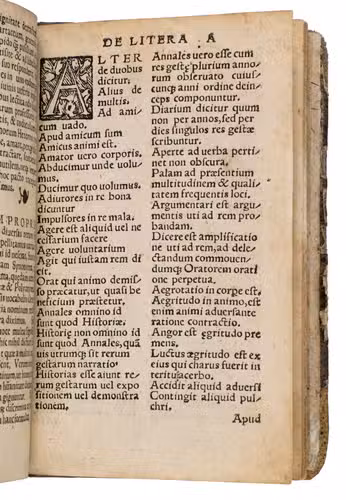 DE LITERA A
ALTER
de duobus
dicitur,
Alius de
multis.
Ad ami-
cum uado,
Apud amicum sum
Amicus animi est.
Amator uero corporis.
Abducimur unde uolu-
mus.
Ducimur quo uolumus.
Adiutores in re bona
dicuntur
Impulsores in re mala.
Agere est aliquid uel ne
cessarium facere
Agere uoluntarium
Agit qui iustam rem di
cit.
Orat qui animo demis-
so præcatur, ut quasi be
neficium præstetur.
Annales omnino id
sunt quod Historiæ,
Historiæ non omnino id
sunt quod Annales, quã
uis utrumq; sit rerum
gestarum narratio
Historias esse aiunt re-
rum gestarum uel expo
sitionem uel demonstra
tionem,
Annales uero esse cum
res gestę plurium anno-
rum obseruato cuius-
cunq; anni ordine dein-
ceps componuntur.
Diarium dicitur quum
non per annos, sed per
dies singulos res gestæ
scribuntur.
Aperte ad uerba perti-
net non obscura.
Palam ad præsentium
multitudinem & quali-
tatem frequentis loci.
Argumentari est argu-
mentis uti ad rem pro-
bandam.
Dicere est amplificatio
ne uti ad rem, ad dele-
ctandum commouen-
dumq; Oratorem orati
one perpetua.
Aegrotatio in corpe est,
Aegritudo in animo, est
enim animi aduersante
ratione contractio.
Angor est ęgritudo pre
mens.
Luctus ægritudo est ex
eius qui charus fuerit in
teritu acerbo.
Accidit aliquid aduersi
Contingit aliquid pul-
chri.
Apud